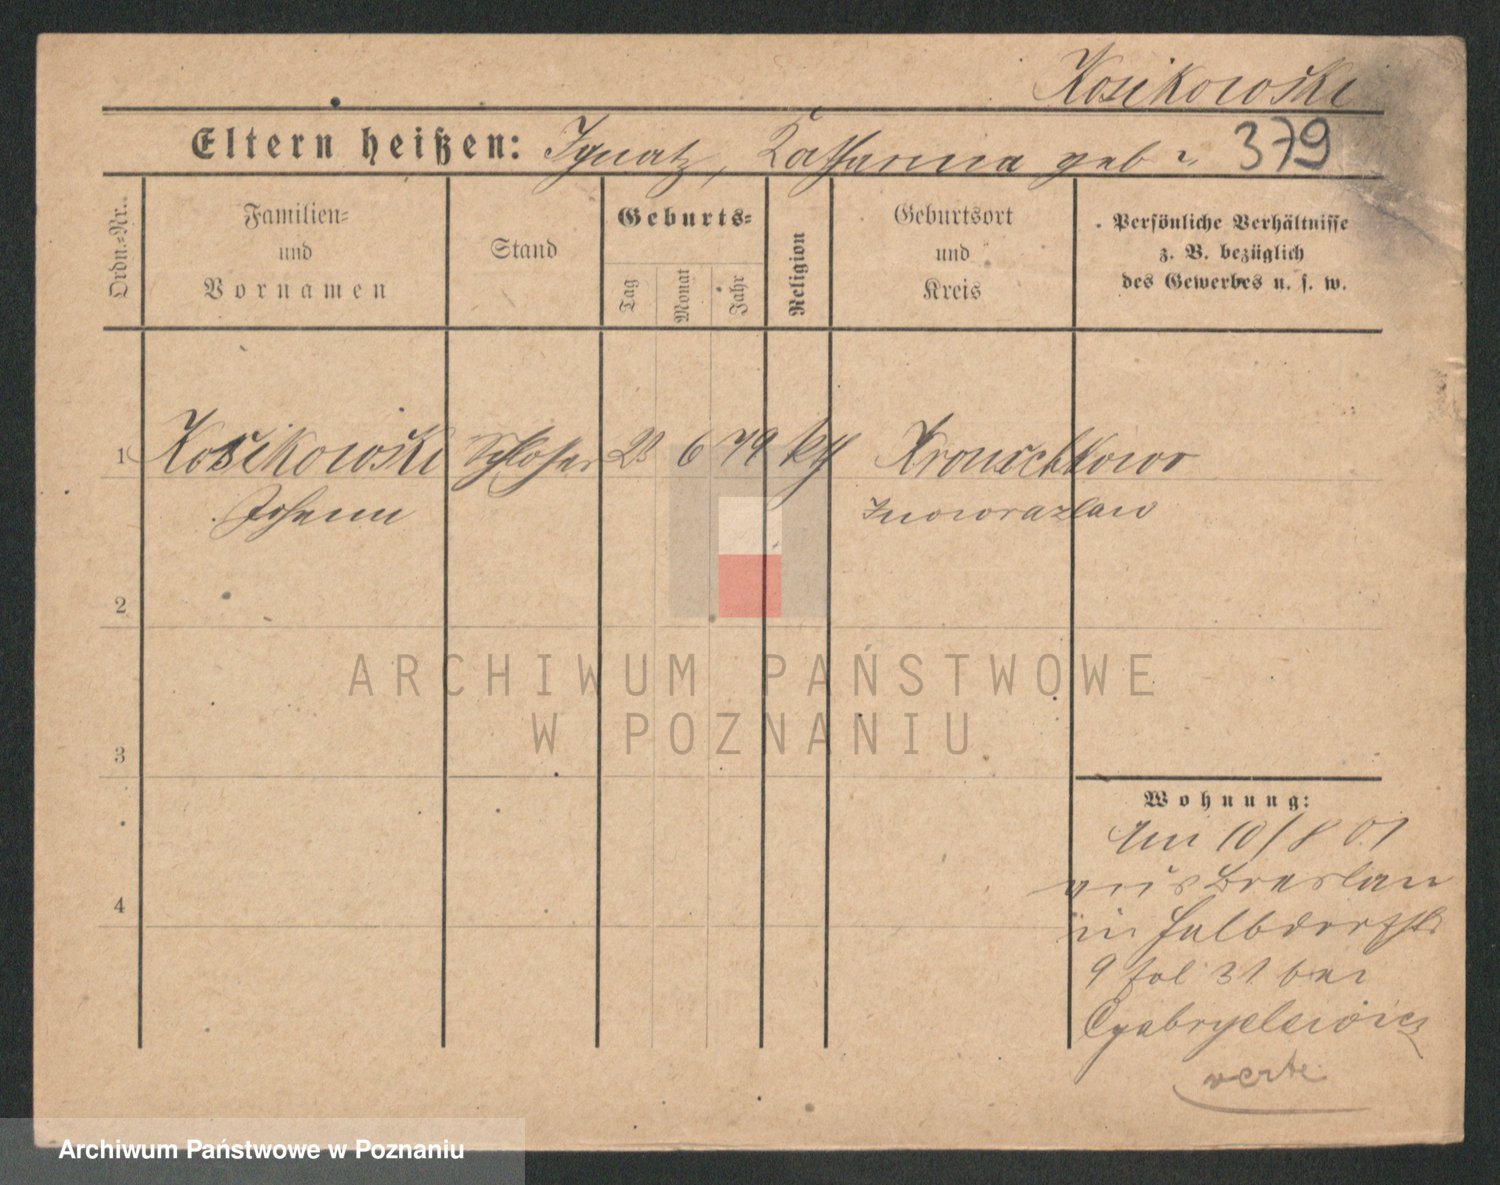 Kosikowski
Eltern heißen: Ignatz, Katharina geb. 379
Ordn.=Nr.
Familien=
und
Vornamen
Stand
Geburts=
Tag
Monat
Jahr
Religion
Geburtsort
und
Kreis
Persönliche Verhältnisse
z. B. bezüglich
des Gewerbes u. s. w.
1 Kosikowski Schlosser 23 6 79 kth
Johann Inowrazlaw
2
3
4
ARCHIWUM PAŃSTWOWE
W POZNANIU
Wohnung:
Am 10/8 01
aus Breslau
in Halbdorfstr
9 fol 31 bei
Gabryelewicz
verte
Archiwum Państwowe w Poznaniu